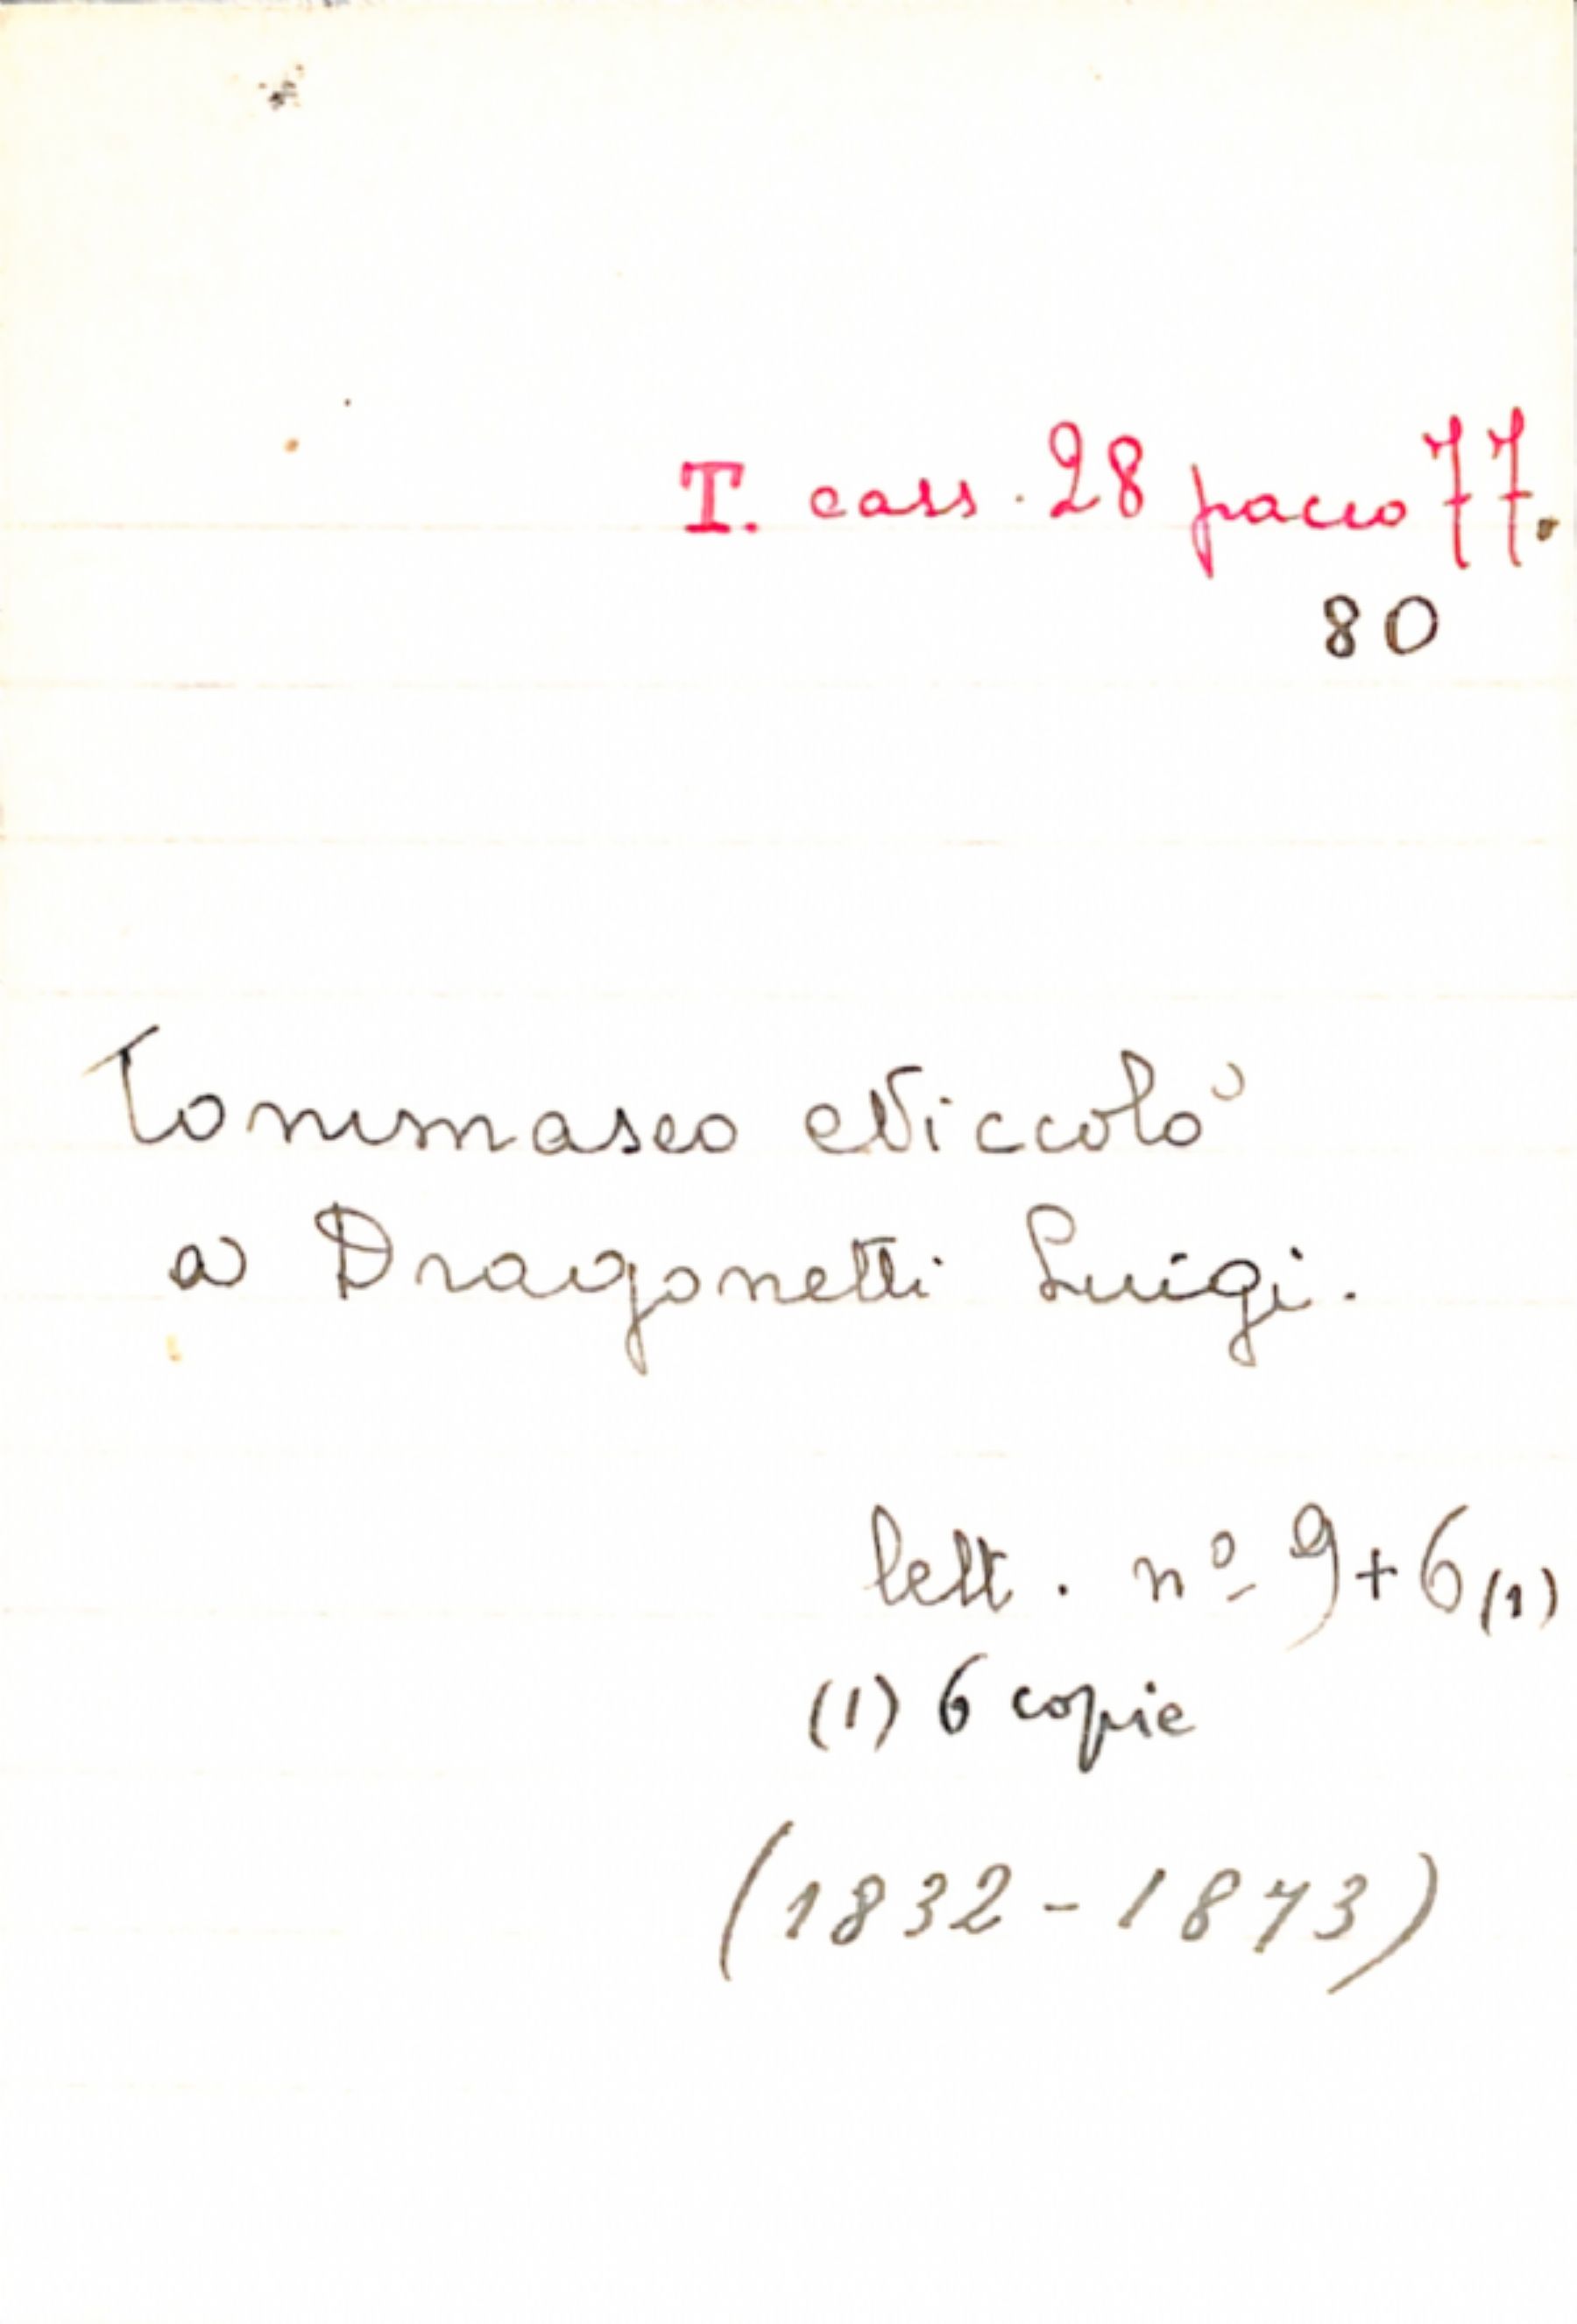 T. cass. 28 pacco 77.
80
Tommaseo Niccolò
a Dragonetti Luigi.
lett. nº 9+6 (1)
(1) 6 copie
(1832-1873)